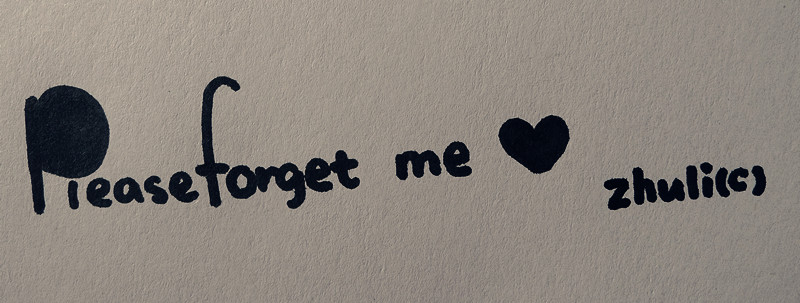 Please forget me ♥
zhuli(c)